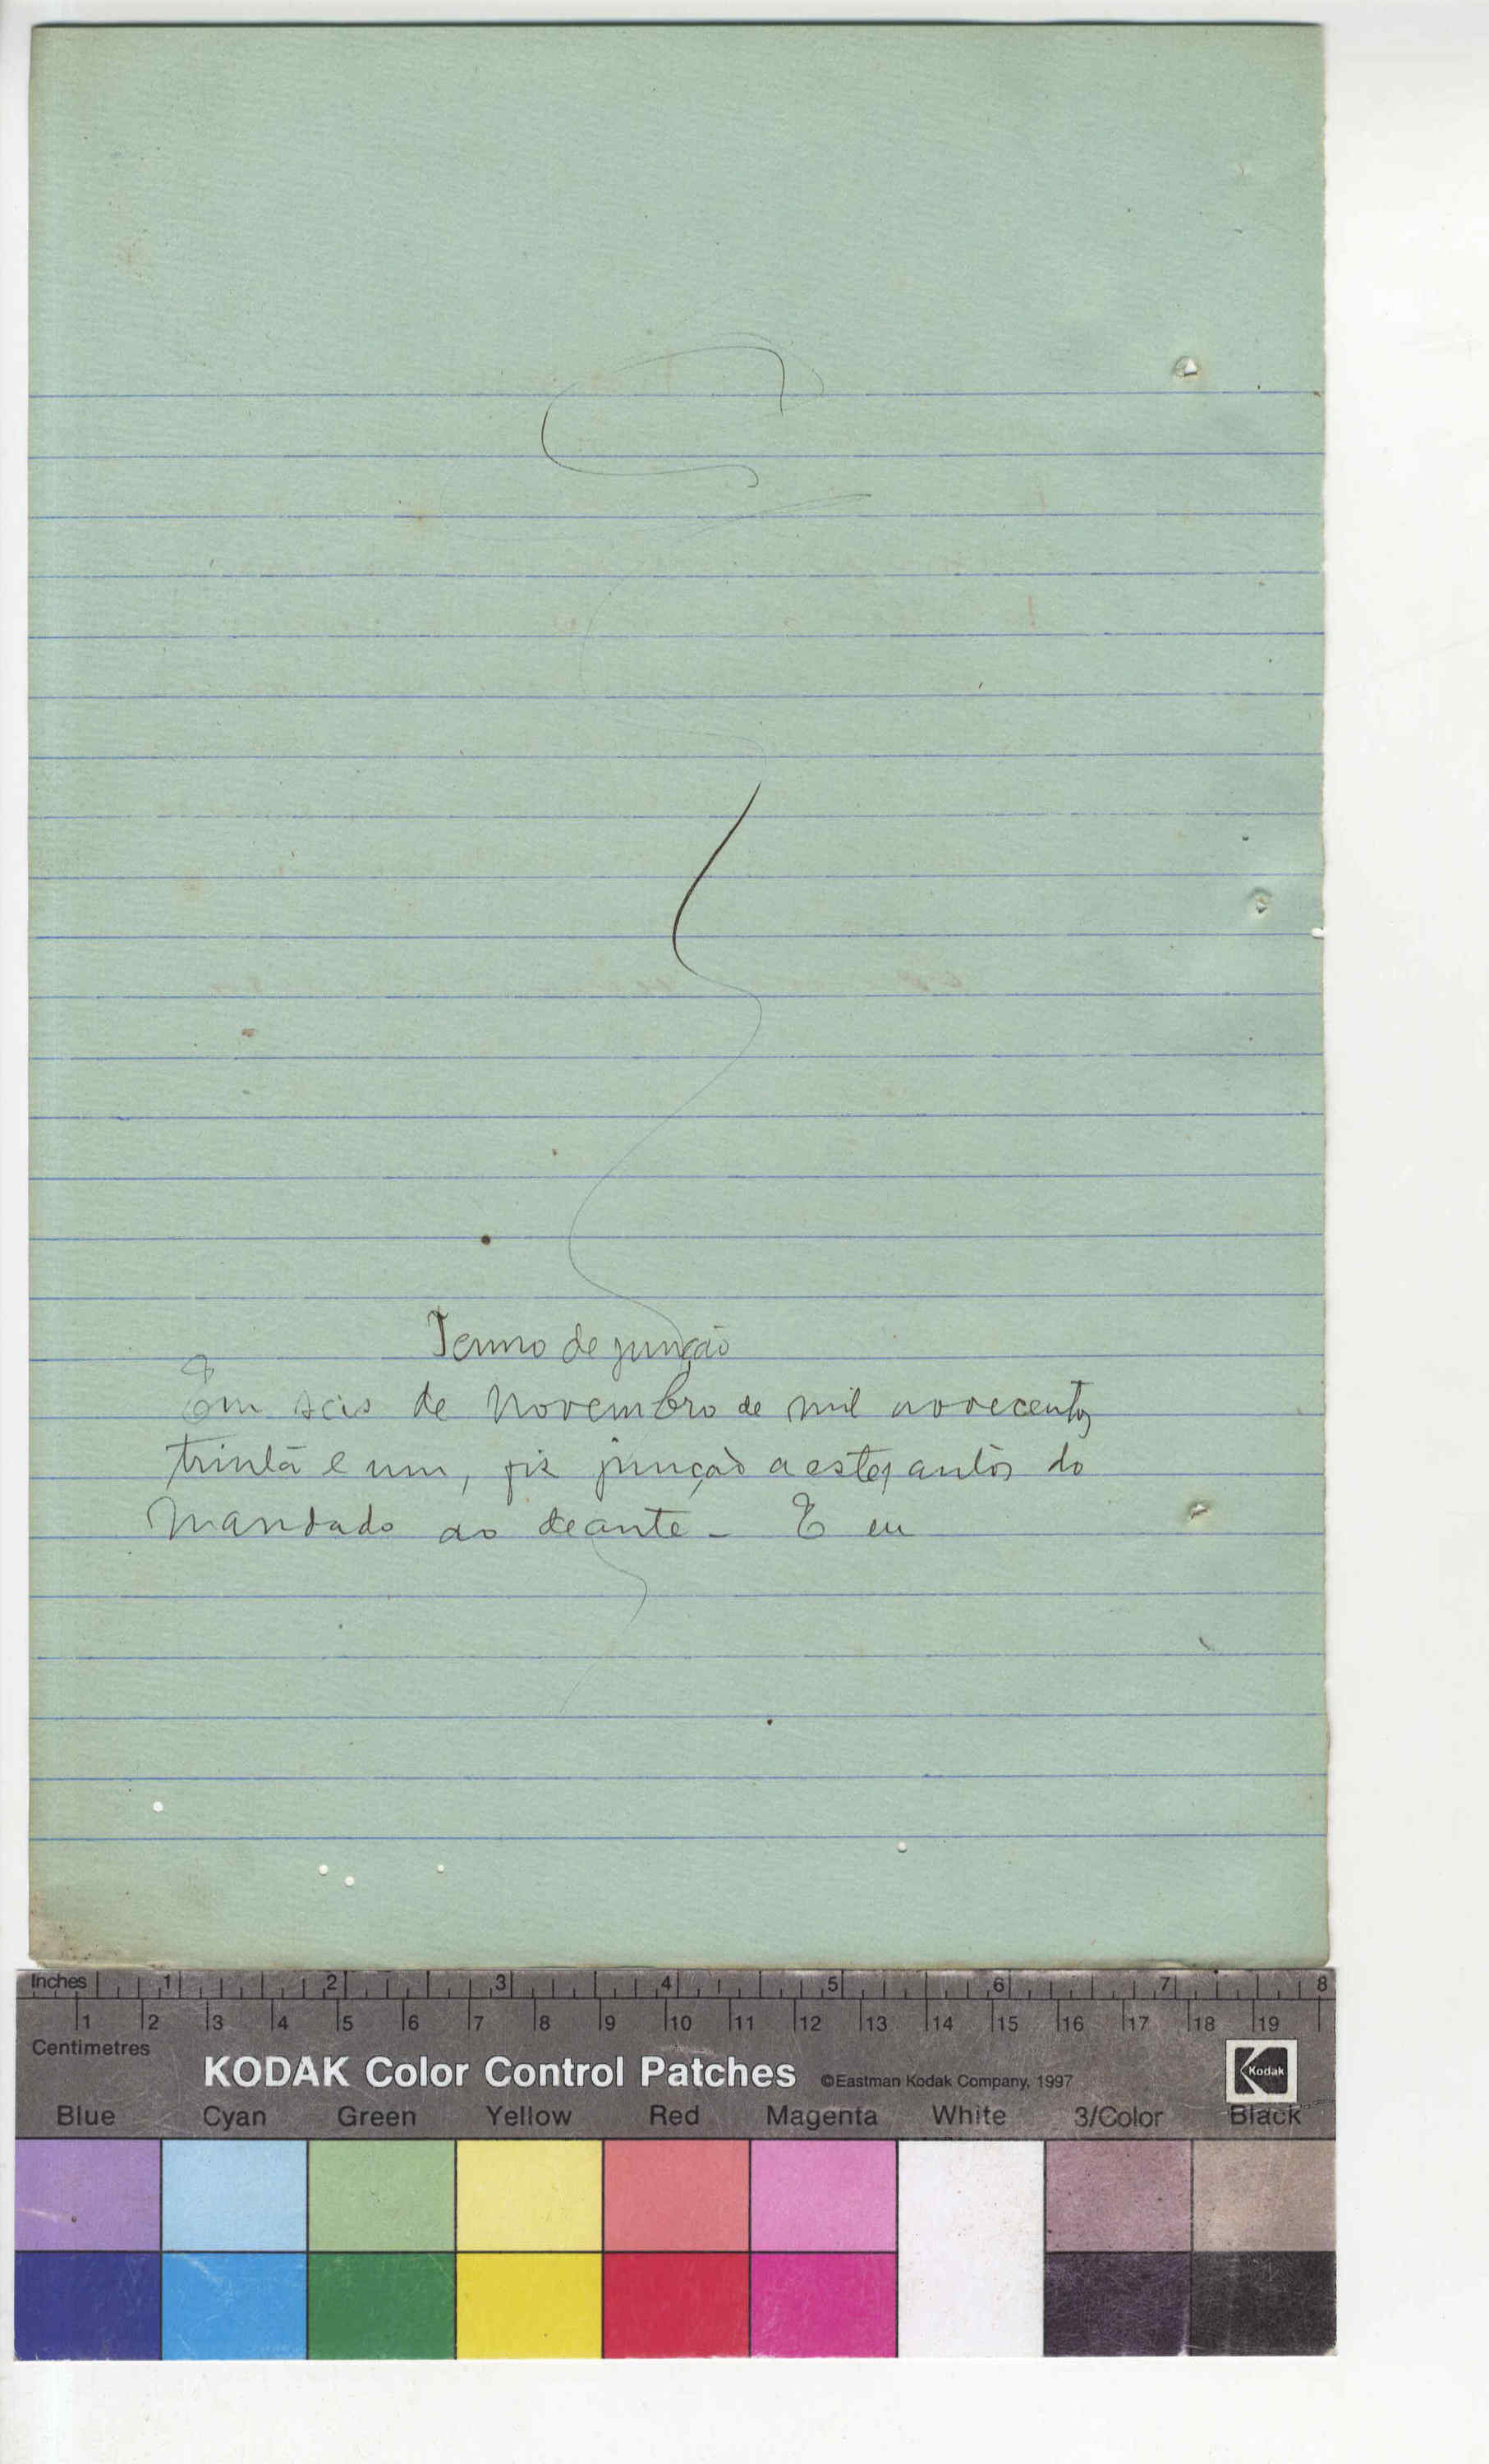 Termo de junção
Em seis de Novembro de mil novecentos
trinta e um, fiz junção a estes autos do
mandado ao deante - E eu
Inches 1 2 3 4 5 6 7 8
1 2 3 4 5 6 7 8 9 10 11 12 13 14 15 16 17 18 19
Centimetres
KODAK Color Control Patches ©Eastman Kodak Company, 1997 Kodak
Blue Cyan Green Yellow Red Magenta White 3/Color Black